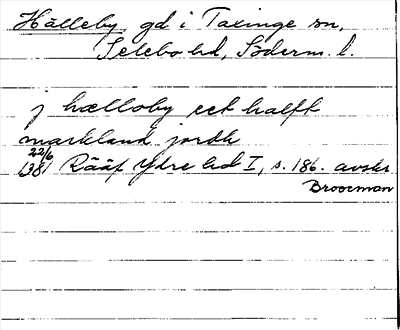 Hälleby gd i Taxinge sn,
Selebo hd, Söderm. l.
j hælloby eet halfft
markland jordh
22/6
1381 Rääf Ydre hd I, s. 186. avskr
Broocman